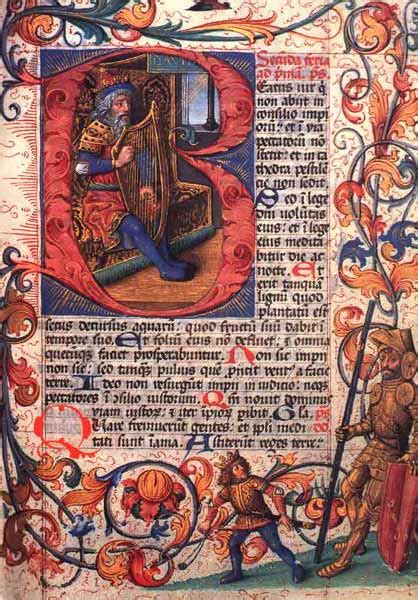 Secūda feria
ad pͥmā. ps.
Eatus uir q̇
non abijt in
consilio im
piorū: et ī uia
peccatorū nō
stetit: et in ca
thedra pestilē
cie non sedit.
Sed ī lege
dnī volūtas
eius: et ī lege
eius medita
bitur die ac
nocte. Et
erit tanquā
lignū quod
plantatū est
secus decursus aquarū: quod fructū suū dabit ī
tempore suo. Et foliū eius nō defluet: & omīa
quecūq; faciet prosperabuntur. Non sic impij
non sic: sed tāq; puluis quē p̄icit vent⁹ a facie
terre. Ideo non resurgūt impij in iudicio: neq;
peccatores ī ɔsilio iustorum. Qm̄ nouit dominus
viam iustorū: & iter īpiorū pibit. Gl̄a. ps
Quare fremuerūt gentes: et ppl̄i medi
tati sunt īania. Astiterūt reges terre: